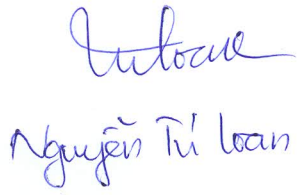 Nguyễn Tú Loan